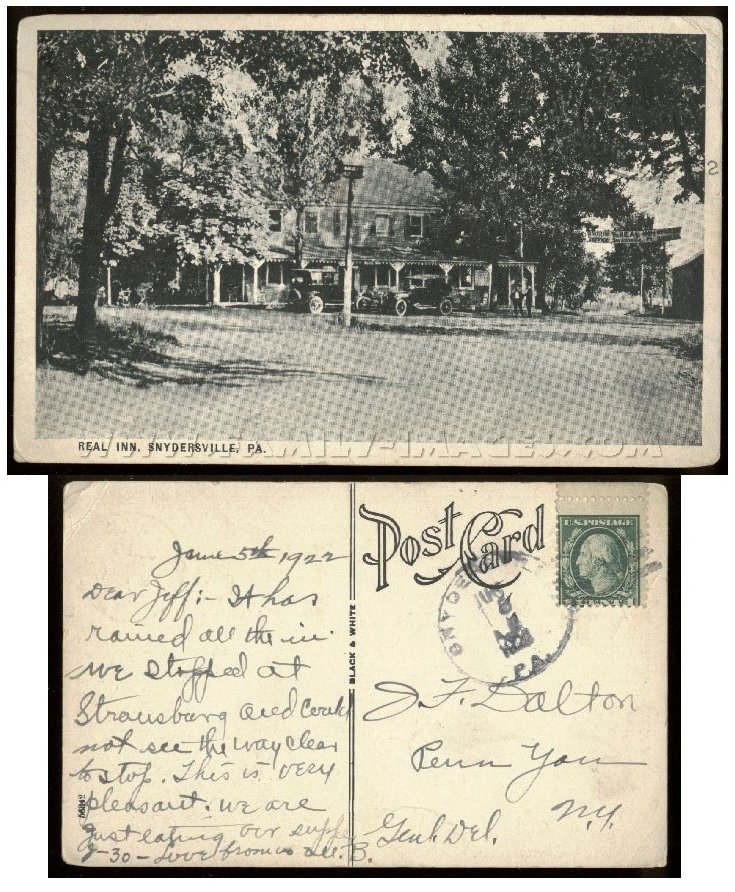 REAL INN, SNYDERSVILLE, PA.
WWW.FAMILY-IMAGES.COM
2
Post Card
U.S. POSTAGE
SNYDE
PA.
BLACK & WHITE
June 5th 1922
Dear Jeff:- It has
rained all the
we stopped at
Strausburg and could
not see the way clear
to stop. This is very
pleasant. we are
Just eating our suppe
7-30- Love from us all. B.
J. F. Dalton
Penn Yan
N.Y.
Genl. Del.